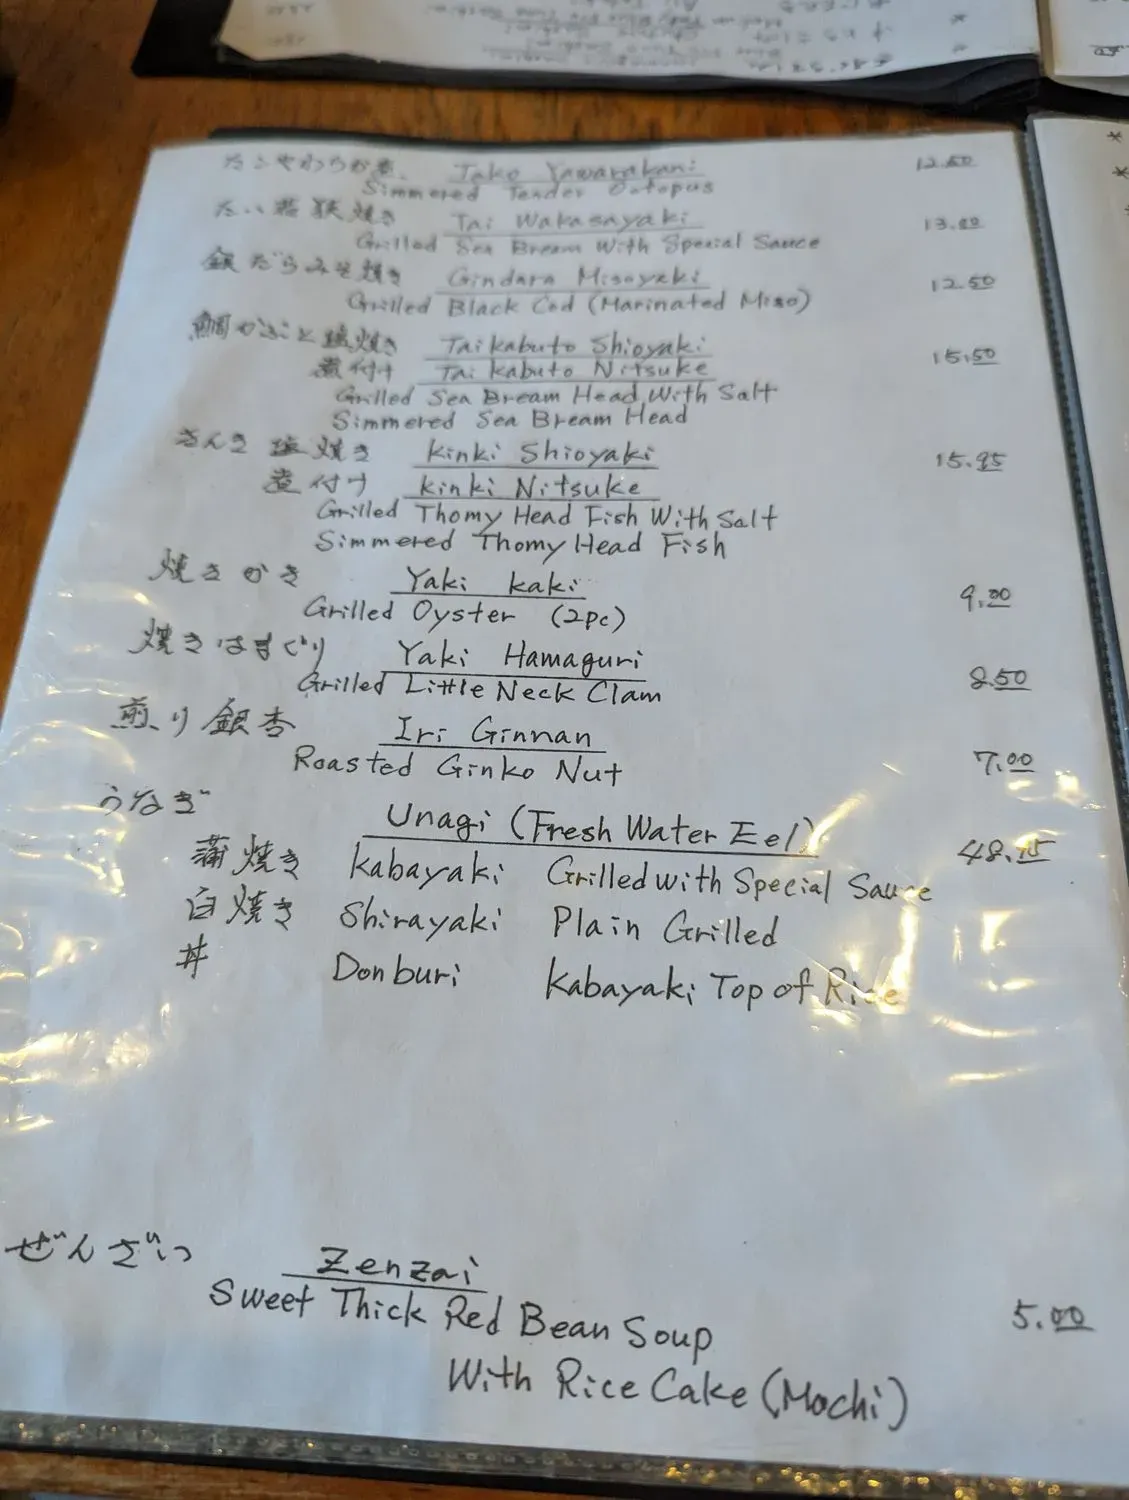 たこやわらか煮 Tako Yawarakani 12.50
Simmered Tender Octopus
たい若狭焼き Tai Wakasayaki 13.00
Grilled Sea Bream With Special Sauce
銀だらみそ焼き Gindara Misoyaki 12.50
Grilled Black Cod (Marinated Miso)
鯛かぶと塩焼き Tai kabuto Shioyaki 15.50
煮付け Tai kabuto Nitsuke
Grilled Sea Bream Head With Salt
Simmered Sea Bream Head
きんき塩焼き kinki Shioyaki 15.95
煮付け kinki Nitsuke
Grilled Thorny Head Fish With Salt
Simmered Thorny Head Fish
焼きかき Yaki kaki 9.00
Grilled Oyster (2pc)
焼きはまぐり Yaki Hamaguri 8.50
Grilled Little Neck Clam
煎り銀杏 Iri Ginnan 7.00
Roasted Ginko Nut
うなぎ Unagi (Fresh Water Eel) 48.
蒲焼き kabayaki Grilled with Special Sauce
白焼き Shirayaki Plain Grilled
丼 Donburi kabayaki Top of Rice
ぜんざい Zenzai
Sweet Thick Red Bean Soup 5.00
With Rice Cake (Mochi)